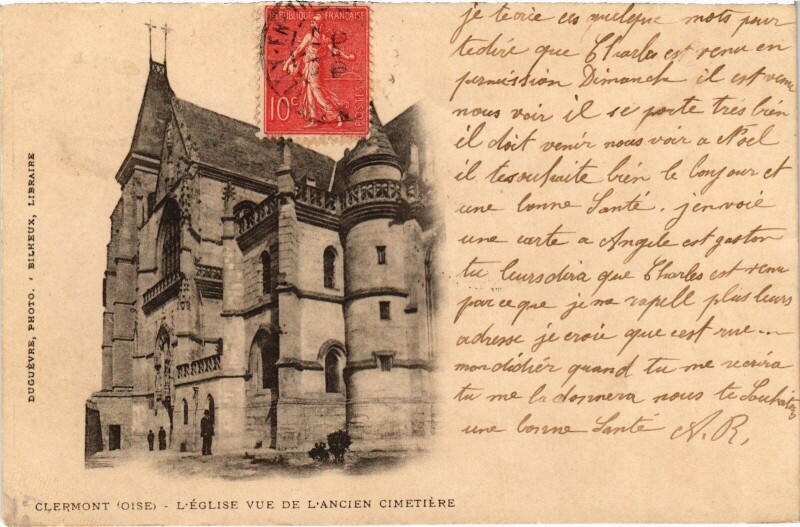 RÉPUBLIQUE FRANÇAISE
10c
POSTES
DUGUÈVRE, PHOTO. - BILHEUX, LIBRAIRE
je tecrie ces quelque mots pour
tedire que Charles est venu en
permission Dimanch il est venu
nous voir il se porte très bien
il doit venir nous voir a Noel
il tesouhaite bien le Conjour et
une bonne Santé. j'envoie
une carte a Angele est gaston
tu leursdira que Charles est venu
parceque je me rapell plus leurs
adresse je croie que cest rue...
mondidier quand tu me recrira
tu me la donnera nous te Souhaitons
une bonne Santé A.R.
CLERMONT (OISE) - L'ÉGLISE VUE DE L'ANCIEN CIMETIÈRE